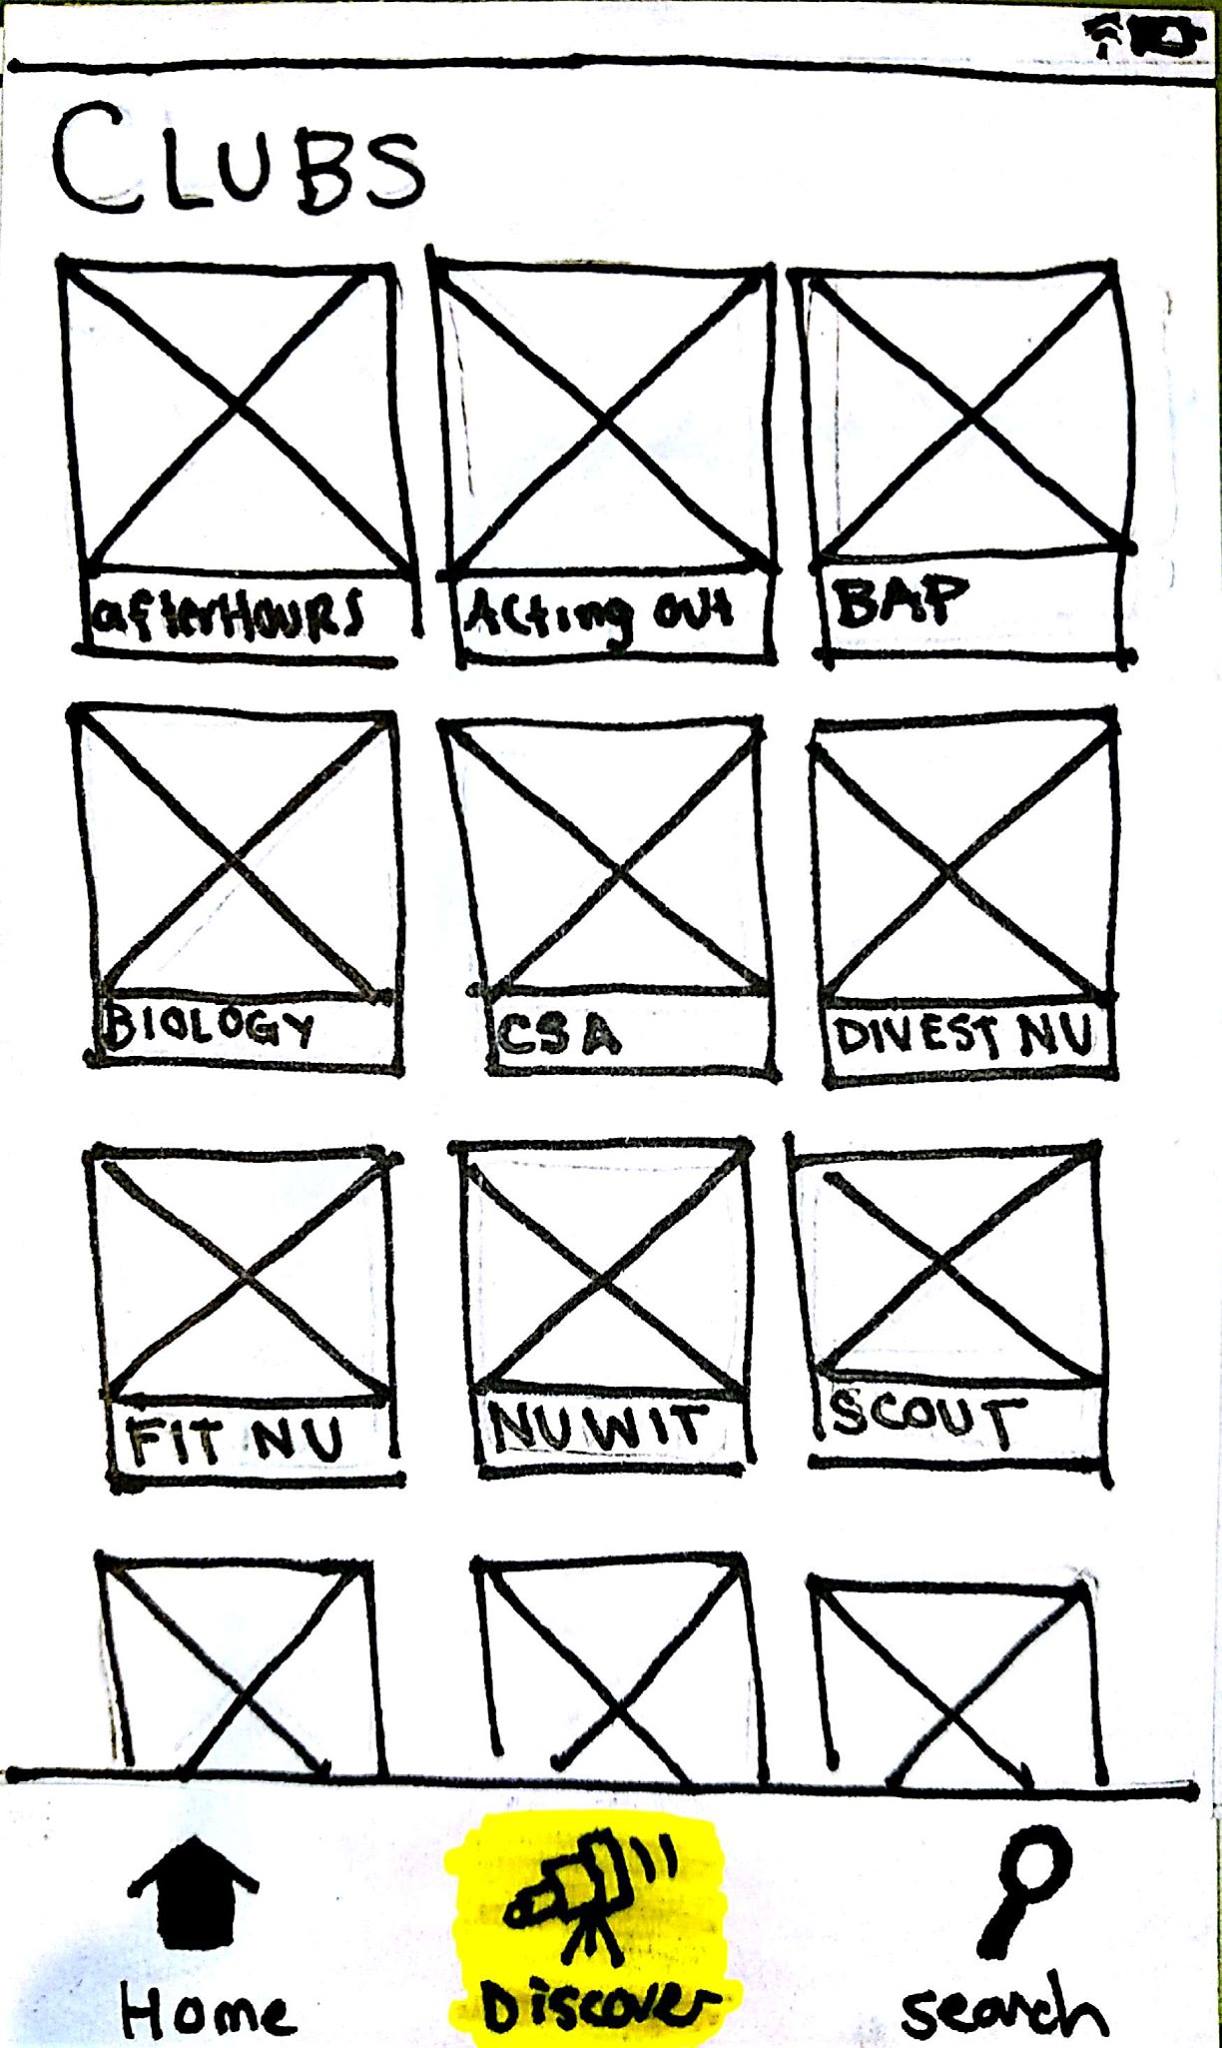 CLUBS
afterHOURS
Acting out
BAP
BIOLOGY
CSA
DIVEST NU
FIT NU
NUWIT
SCOUT
Home
Discover
search